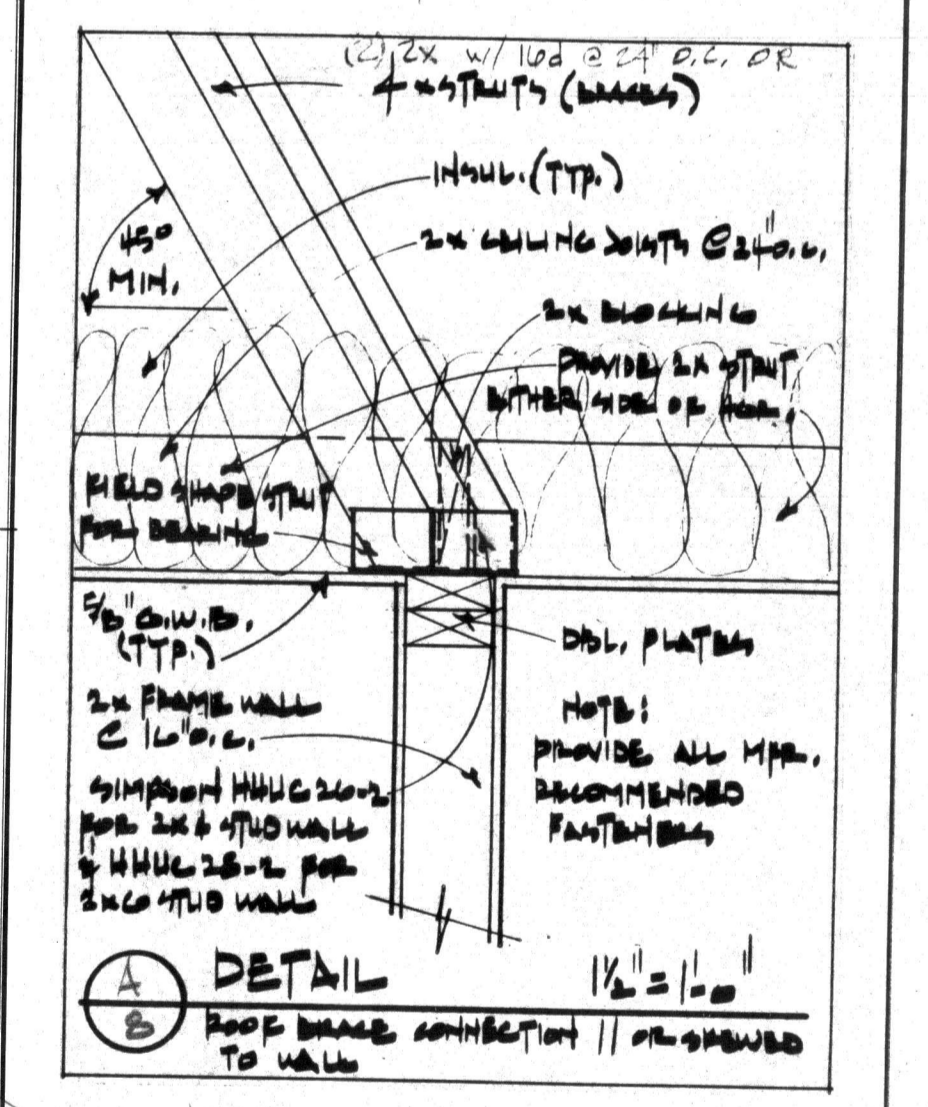 (2) 2x w/ 16d @ 24" O.C. OR
4 x STRUTS (BRACES)
INSUL. (TYP.)
45°
MIN.
2x CEILING JOISTS @ 24" O.C.
2x BLOCKING
PROVIDE 2x STRUT
EITHER SIDE OF
FIELD SHAPE STRUT
FOR BEARING
5/8" G.W.B.
(TYP.)
DBL. PLATES
2x FRAME WALL
@ 16" O.C.
SIMPSON HHUC 26-2
FOR 2x STUD WALL
& HHUC 28-2 FOR
2x6 STUD WALL
NOTE:
PROVIDE ALL MFR.
RECOMMENDED
FASTENERS
A
8
DETAIL
1 1/2" = 1'-0"
ROOF BRACE CONNECTION // OR SKEWED
TO WALL